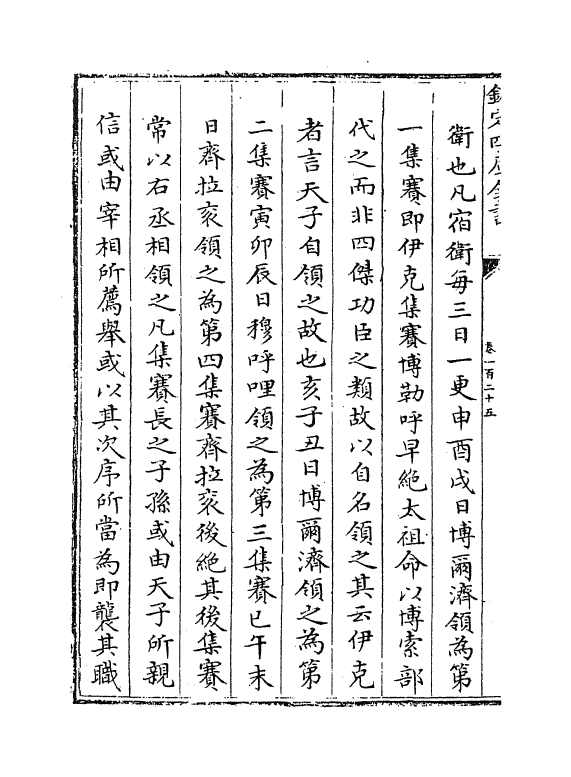 欽定四庫全書
卷一百二十五
衛也凡宿衛每三日一更申酉戌日博爾濟領為第
一集賽即伊克集賽博勒呼早絶太祖命以博索部
代之而非四傑功臣之類故以自名領之其云伊克
者言天子自領之故也亥子丑日博爾濟領之為第
二集賽寅卯辰日穆呼哩領之為第三集賽巳午未
日齊拉衮領之為第四集賽齊拉衮後絶其後集賽
常以右丞相領之凡集賽長之子孫或由天子所親
信或由宰相所薦舉或以其次序所當為即襲其職